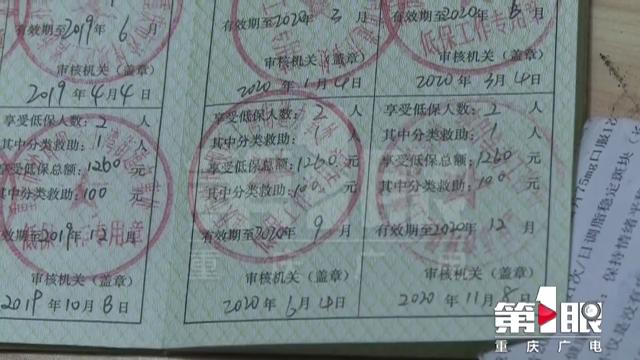 有效期至2019年6月
审核机关（盖章）
2019年4月4日
享受低保人数：2人
其中分类救助：1人
享受低保总额：1260元
其中分类救助：100元
有效期至2019年12月
审核机关（盖章）
2019年10月8日
有效期至2020年3月
审核机关（盖章）
2020年1月4日
享受低保人数：2人
其中分类救助：1人
享受低保总额：1260元
其中分类救助：100元
有效期至2020年9月
审核机关（盖章）
2020年6月4日
有效期至2020年6月
低保工作专用章
审核机关（盖章）
2020年3月4日
享受低保人数：2人
其中分类救助：1人
享受低保总额：1260元
其中分类救助：100元
有效期至2020年12月
审核机关（盖章）
2020年11月8日
重庆广电
第1眼
重庆广电